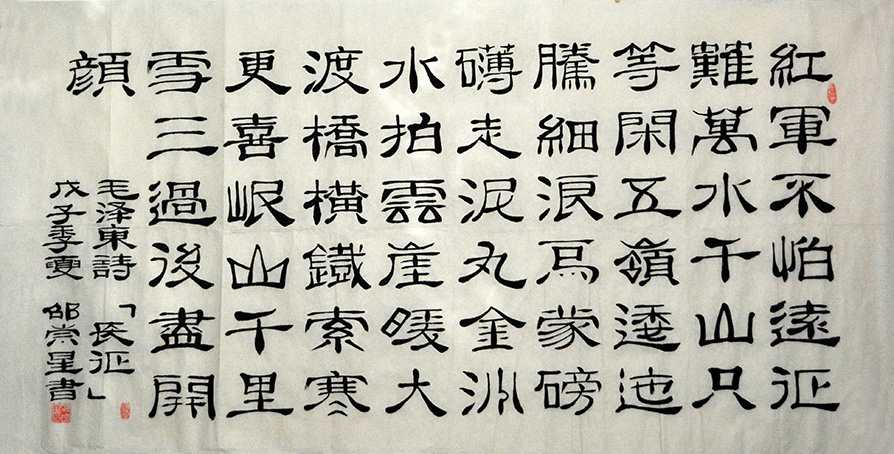 紅軍不怕遠征
難萬水千山只
等閑五嶺逶迤
騰細浪烏蒙磅
礴走泥丸金沙
水拍雲崖暖大
渡橋橫鐵索寒
更喜岷山千里
雪三過後盡開
顔
毛泽東詩「長征」
戊子季夏 邵崇星書